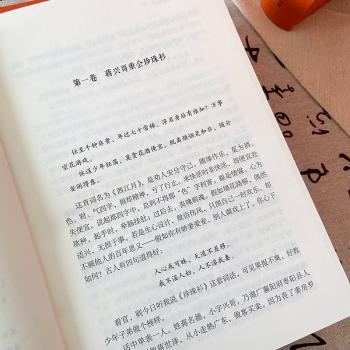 第一卷 蒋兴哥重会珍珠衫
仕至千钟非贵，年过七十常稀。浮名身后有谁知？万事
空花游戏。
休逞少年狂荡，莫贪花酒便宜。脱离烦恼是和非，随分
安闲得意。
这首词名为《西江月》，是劝人安分守己，随缘作乐，莫为酒、
色、财、气四字，损却精神，亏了行止。求快活时非快活，得便宜处
失便宜。说起那四字中，总到不得那“色”字利害。眼是情媒，心为
欲种。起手时，牵肠挂肚；过后去，丧魄销魂。假如墙花路柳，偶然
适兴，无损于事。若是生心设计，败俗伤风，只图自己一时欢乐，却
不顾他人的百年恩义——假如你有娇妻爱妾，别人调戏上了，你心下
如何？古人有四句道得好：
人心或可昧，天道不差移。
我不淫人妇，人不淫我妻。
看官，则今日听我说《珍珠衫》这套词话，可见果报不爽，好教
少年子弟做个榜样。
话中单表一人，姓蒋名德，小字兴哥，乃湖广襄阳府枣阳县人
蒋世泽，从小走熟广东，做客买卖。因为丧了妻房罗